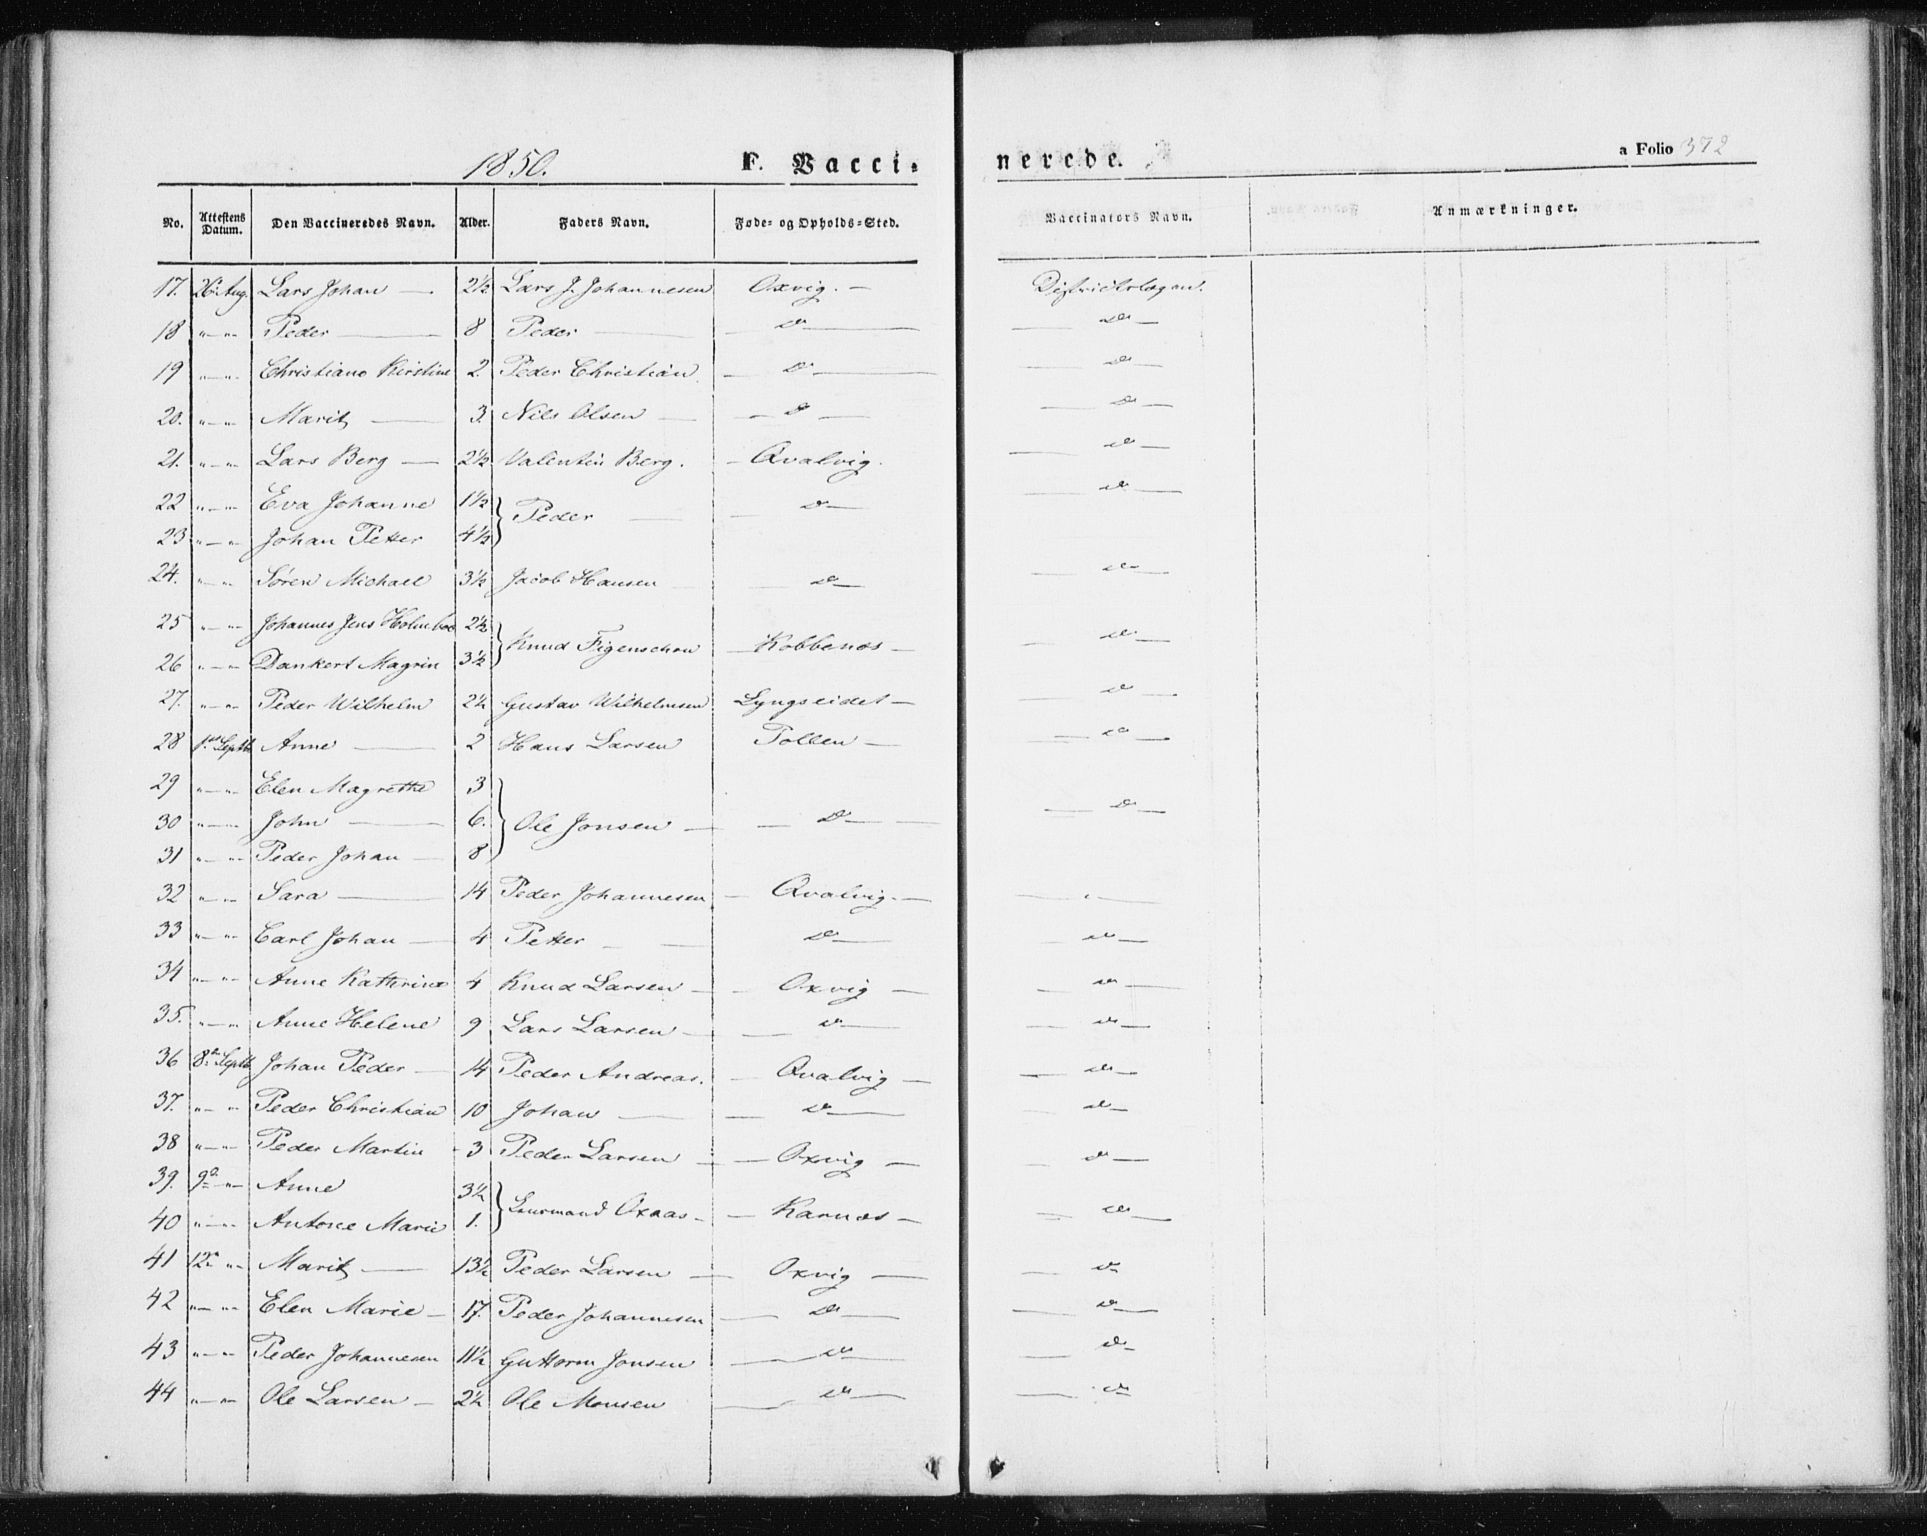 1850. F. Vacci-nerede. a Folio 372
No. Attestens Datum. Den Vaccineredes Navn. Alder. Faders Navn. Føde- og Opholds-Sted. Vaccinators Navn. Anmærkninger.
17. 26 Aug. Lars Johan — 2½ Lars J. Johannesen Oxvig. — Districtslægen.
18 " — " Peder — 8 Peder — Do — Do —
19 " — " Christiane Kirstine 2. Peder Christian — Do — Do —
20. " — " Marit — 3. Nils Olsen — Do — Do —
21. " — " Lars Berg — 2½ Valentin Berg. — Qvalvig. — Do —
22 " — " Eva Johanne 1½ } Peder — Do — Do —
23 " — " Johan Petter 4½
24. " — " Sören Michael 3½ Jacob Hansen — Do — Do —
25 " — " Johannes Jens Holmboe 2½ } Knud Figenschou — Kobbenæs — Do —
26 " — " Dankert Magrin 3½
27. " — " Peder Wilhelm 2½ Gustav Wilhelmsen Lyngseidet — Do —
28 1 Septb Anne — 2 Hans Larsen Pollen — Do —
29 " — " Elen Magrethe 3
30 " — " John — 6. } Ole Jonsen — Do — Do —
31 " — " Peder Johan — 8
32 " — " Sara — 14 Peder Johannesen — Qvalvig. — "
33 " — " Carl Johan — 4 Petter — Do — Do —
34 " — " Anne Kathrine 4 Knud Larsen — Oxvig — Do —
35. " — " Anne Helene 9 Lars Larsen — Do — Do —
36 8 Septb Johan Peder — 14 Peder Andreas. — Qvalvig — Do —
37. " — " Peder Christian 10 Johan — Do — Do —
38 " — " Peder Martin 3 Peder Larsen — Oxvig — Do —
39. 9 — " Anne 3½ } Oxaas — Karnæs — Do —
40 " — " Antone Marie 1.
41 12 " Marit — 13½ Peder Larsen — Oxvig — Do
42 " — " Elen Marie — 17. Peder Johannesen — Do — Do —
43 " — " Peder Johannesen 11½ Guttorm Jonsen — Do — Do
44 " — " Ole Larsen — 2½ Ole Monsen — Do — Do